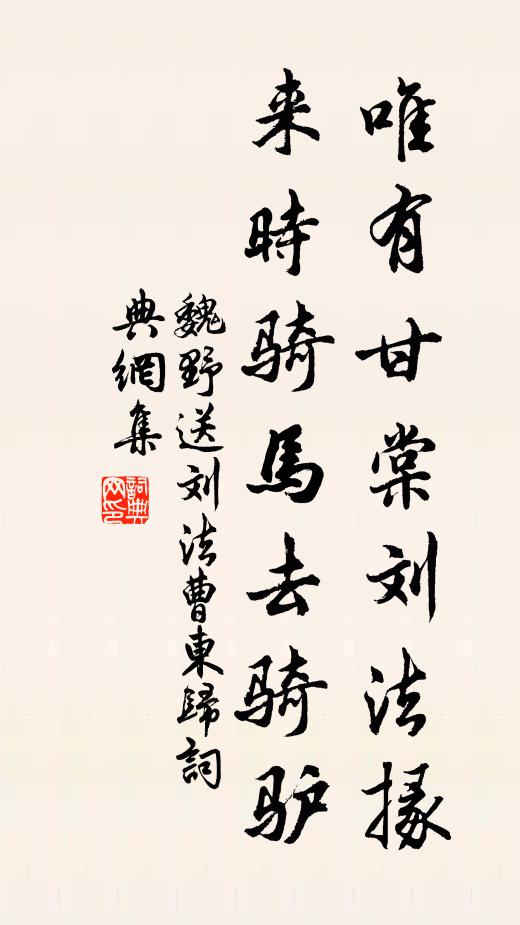 唯有甘棠刘法掾
来時骑馬去骑驴
魏野送刘法曹東歸詞
典網集
詞典網印